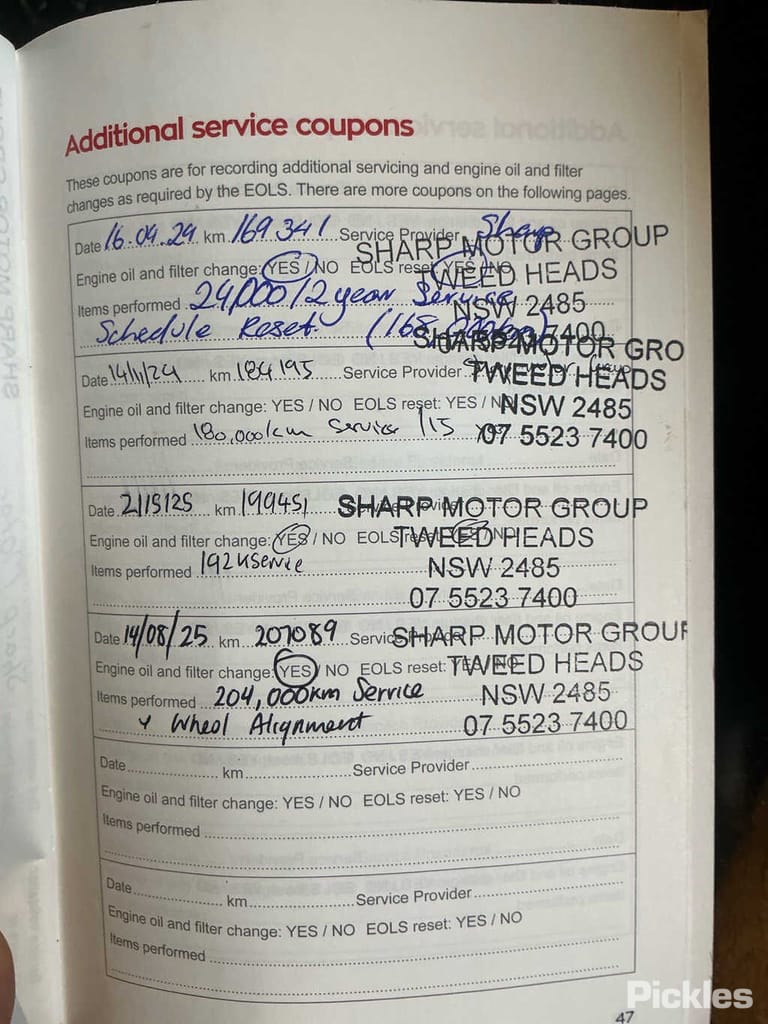 Additional service coupons
These coupons are for recording additional servicing and engine oil and filter
changes as required by the EOLS. There are more coupons on the following pages.
Date 16.04.24 km 169341 Service Provider Sharp
SHARP MOTOR GROUP
Engine oil and filter change: YES / NO EOLS reset: YES / NO
TWEED HEADS
Items performed 24,000/2 year Service
NSW 2485
Schedule Reset (168,000km)
07 5523 7400
Date 14/11/24 km 184195 Service Provider
SHARP MOTOR GRO
TWEED HEADS
Engine oil and filter change: YES / NO EOLS reset: YES / NO
NSW 2485
Items performed 180,000km Service /15 yr
07 5523 7400
Date 2/15/25 km 199451 Service Provider
SHARP MOTOR GROUP
Engine oil and filter change: YES / NO EOLS reset: YES / NO
TWEED HEADS
Items performed 192K Service
NSW 2485
07 5523 7400
Date 14/08/25 km 207089 Service Provider
SHARP MOTOR GROUP
Engine oil and filter change: YES / NO EOLS reset: YES / NO
TWEED HEADS
Items performed 204,000km Service
NSW 2485
+ Wheel Alignment
07 5523 7400
Date km Service Provider
Engine oil and filter change: YES / NO EOLS reset: YES / NO
Items performed
Date km Service Provider
Engine oil and filter change: YES / NO EOLS reset: YES / NO
Items performed
47
Pickles